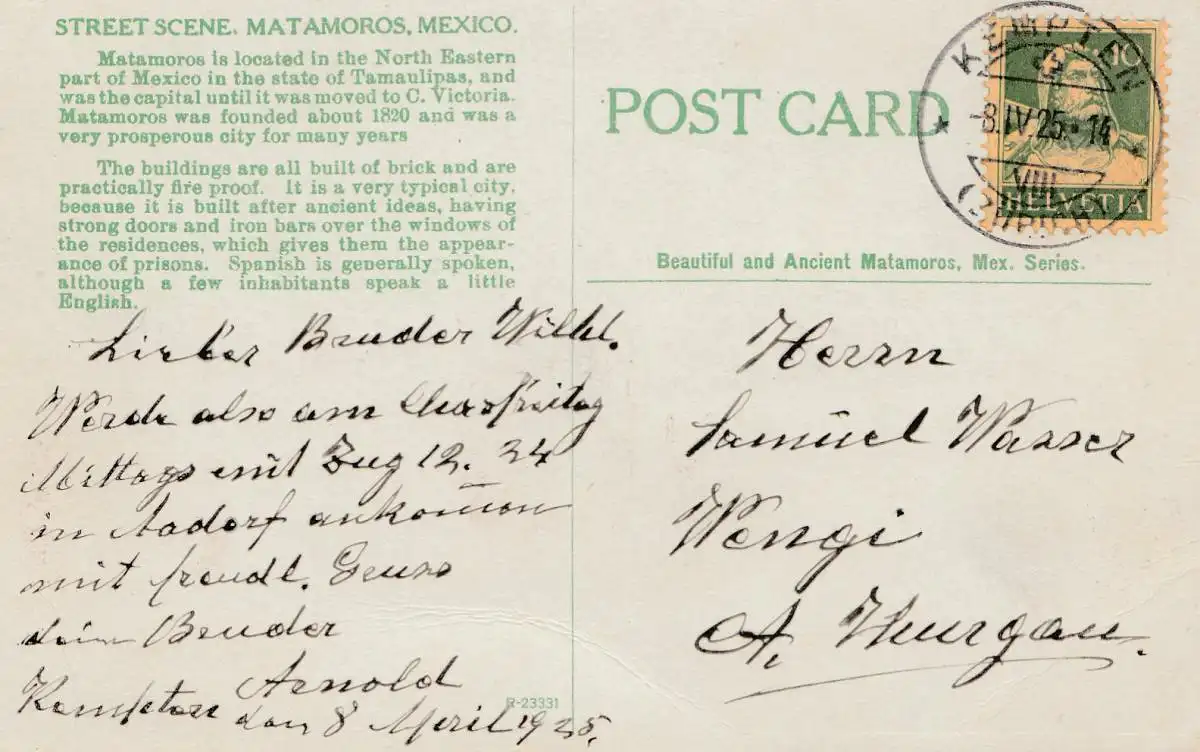 STREET SCENE. MATAMOROS, MEXICO.
Matamoros is located in the North Eastern
part of Mexico in the state of Tamaulipas, and
was the capital until it was moved to C. Victoria.
Matamoros was founded about 1820 and was a
very prosperous city for many years
The buildings are all built of brick and are
practically fire proof. It is a very typical city,
because it is built after ancient ideas, having
strong doors and iron bars over the windows of
the residences, which gives them the appear-
ance of prisons. Spanish is generally spoken,
although a few inhabitants speak a little
English.
Lieber Bruder Wilhl.
Werde also am Charfreitag
Mittags mit Zug 12.24
in Aadorf ankom̄en
mit freudl. Gruss
dein Bruder
Arnold
Kempten den 8 April 1925.
R-23331
POST CARD
KEMPTEN
-8.IV.25.-14
VIII
(ZÜRICH)
10
HELVETIA
Beautiful and Ancient Matamoros, Mex. Series.
Herrn
Samuel Wasser
Wengi
A. Thurgau.